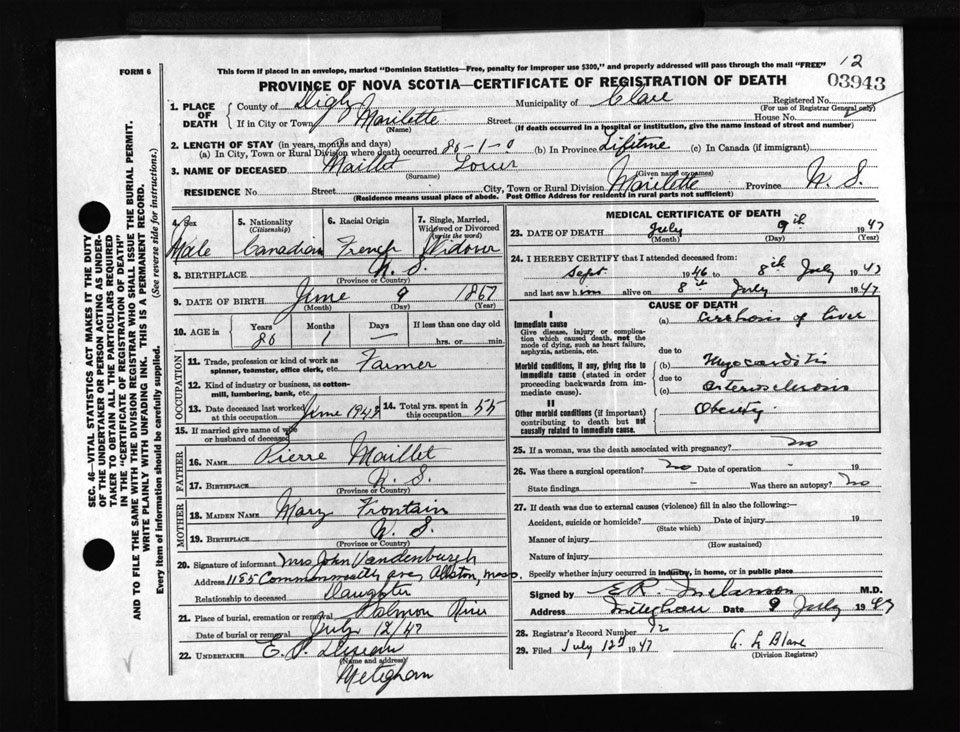 12
FORM 6
This form if placed in an envelope, marked "Dominion Statistics—Free, penalty for improper use $300," and properly addressed will pass through the mail "FREE"
PROVINCE OF NOVA SCOTIA—CERTIFICATE OF REGISTRATION OF DEATH
03943
1. PLACE OF DEATH
County of Digby Municipality of Clare Registered No.
(For use of Registrar General only)
If in City or Town Marilette Street House No.
(Name) (If death occurred in a hospital or institution, give the name instead of street and number)
2. LENGTH OF STAY (in years, months and days)
(a) In City, Town or Rural Division where death occurred 80-1-0 (b) In Province Lifetime (c) In Canada (if immigrant)
3. NAME OF DECEASED Maillet
(Surname) (Given or names)
RESIDENCE No. Street City, Town or Rural Division Marilette Province N. S.
(Residence means usual place of abode. Post Office Address for residents in rural parts not sufficient)
4. Sex 5. Nationality 6. Racial Origin 7. Single, Married, Widowed or Divorced
(Citizenship) (write the word)
Male Canadian French Widower
8. BIRTHPLACE N. S.
(Province or Country)
9. DATE OF BIRTH June 9 1867
(Month) (Day) (Year)
10. AGE in Years Months Days If less than one day old
80 1 — hrs. or min.
OCCUPATION
11. Trade, profession or kind of work as spinner, teamster, office clerk, etc. Farmer
12. Kind of industry or business, as cotton-mill, lumbering, bank, etc.
13. Date deceased last worked at this occupation June 1943 14. Total yrs. spent in this occupation 55
15. If married give name of wife or husband of deceased
FATHER
16. Name Pierre Maillet
17. Birthplace N. S.
(Province or Country)
MOTHER
18. Maiden Name Mary Frontain
19. Birthplace N. S.
(Province or Country)
20. Signature of informant Mrs John Vandenburgh
Address 1155 Commonwealth ave Allston, Mass.
Relationship to deceased Daughter
21. Place of burial, cremation or removal Salmon River
Date of burial or removal July 12/47
22. UNDERTAKER E. P.
(Name and address)
Meteghan
MEDICAL CERTIFICATE OF DEATH
23. DATE OF DEATH July 9th 1947
(Month) (Day) (Year)
24. I HEREBY CERTIFY that I attended deceased from:
Sept 1946 to 8th July 1947
and last saw him alive on 8th July 1947
CAUSE OF DEATH
I
Immediate cause
Give disease, injury or complication which caused death, not the mode of dying, such as heart failure, asphyxia, asthenia, etc.
(a) Cirrhosis of liver
due to
Morbid conditions, if any, giving rise to immediate cause (stated in order proceeding backwards from immediate cause).
(b) Myocarditis
due to
(c) arteriosclerosis
II
Other morbid conditions (if important) contributing to death but not causally related to immediate cause.
Obesity
25. If a woman, was the death associated with pregnancy? no
26. Was there a surgical operation? no Date of operation - 19
State findings - Was there an autopsy? no
27. If death was due to external causes (violence) fill in also the following:—
Accident, suicide or homicide? Date of injury 19
(State which)
Manner of injury
(How sustained)
Nature of injury
Specify whether injury occurred in industry, in home, or in public place
Signed by E R. Melanson M.D.
Address Meteghan Date 9 July 1947
28. Registrar's Record Number 12
29. Filed July 12th 1947
(Division Registrar)
SEC. 46—VITAL STATISTICS ACT MAKES IT THE DUTY
OF THE UNDERTAKER OR PERSON ACTING AS UNDER-
TAKER TO OBTAIN ALL THE PARTICULARS REQUIRED
IN THE "CERTIFICATE OF REGISTRATION OF DEATH"
AND TO FILE THE SAME WITH THE DIVISION REGISTRAR WHO SHALL ISSUE THE BURIAL PERMIT.
WRITE PLAINLY WITH UNFADING INK. THIS IS A PERMANENT RECORD.
Every item of information should be carefully supplied. (See reverse side for instructions.)